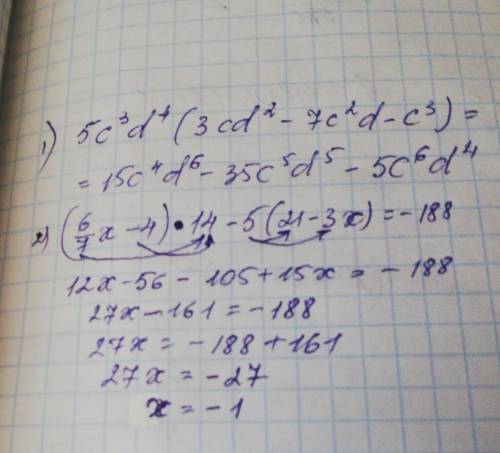 1) 5c³d⁴(3cd² - 7c²d - c³) =
= 15c⁴d⁶ - 35c⁵d⁵ - 5c⁶d⁴
2) (6/7x - 4) • 14 - 5(21 - 3x) = -188
12x - 56 - 105 + 15x = -188
27x - 161 = -188
27x = -188 + 161
27x = -27
x = -1